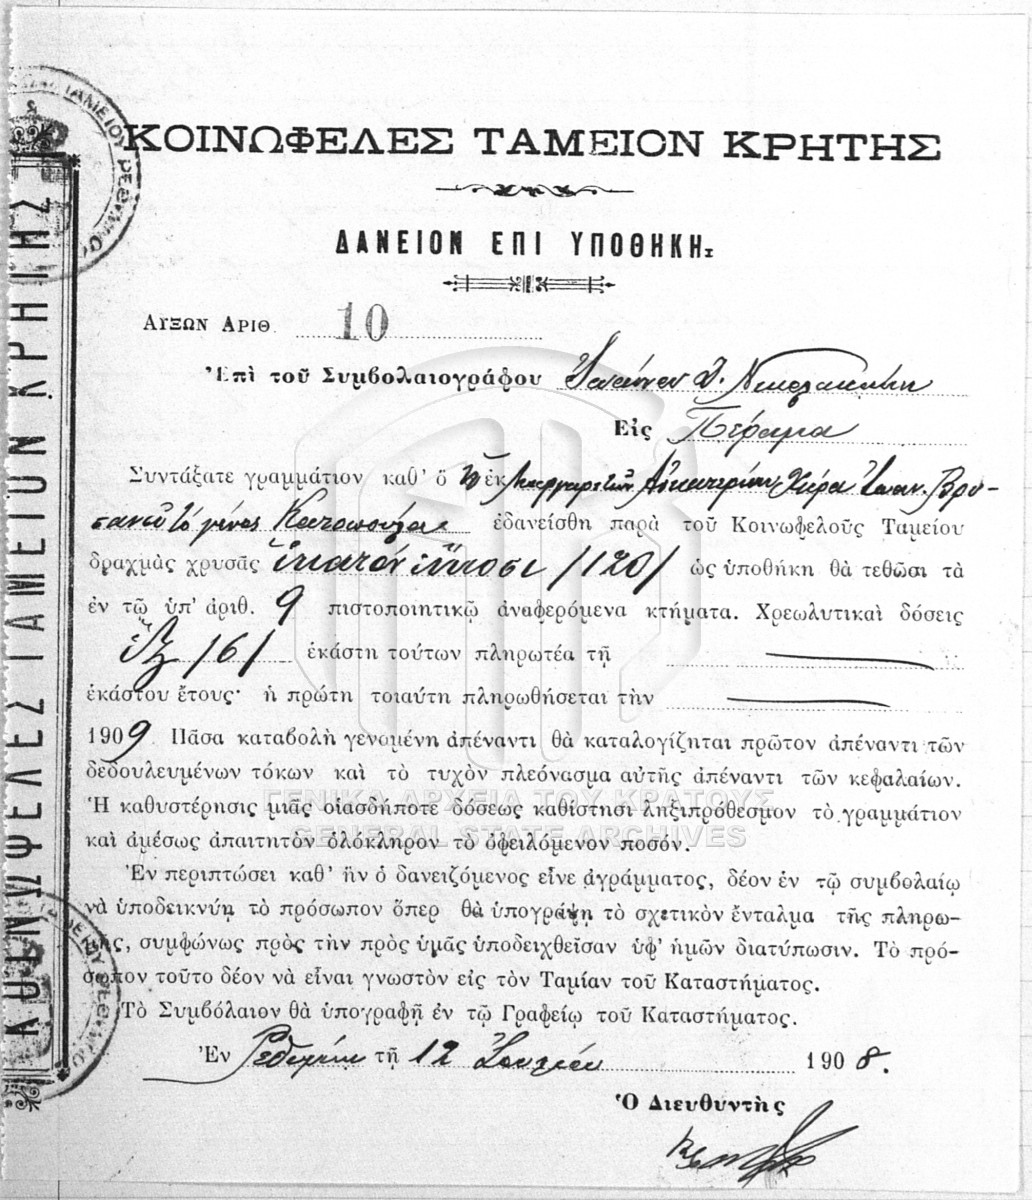 ΚΟΙΝΩΦΕΛΕΣ ΤΑΜΕΙΟΝ ΚΡΗΤΗΣ
ΔΑΝΕΙΟΝ ΕΠΙ ΥΠΟΘΗΚΗι
ΑΥΞΩΝ ΑΡΙΘ. 10
Ἐπὶ τοῦ Συμβολαιογράφου Ἰωάννου Νικολακάκη
Εἰς Πέραμα
Συντάξατε γραμμάτιον καθ' ὃ ἡ ἐκ Μαργαριτῶν Αἰκατερίνη Χήρα Ἰωαν. Βρυ-
τὸ γένος ἐδανείσθη παρὰ τοῦ Κοινωφελοῦς Ταμείου
δραχμὰς χρυσᾶς ἑκατὸν εἴκοσι /120/ ὡς ὑποθήκη θὰ τεθῶσι τὰ
ἐν τῷ ὑπ' ἀριθ. 9 πιστοποιητικῷ ἀναφερόμενα κτήματα. Χρεωλυτικαὶ δόσεις
ἓξ /6/ ἑκάστη τούτων πληρωτέα τῇ
ἑκάστου ἔτους· ἡ πρώτη τοιαύτη πληρωθήσεται τὴν
1909. Πᾶσα καταβολὴ γενομένη ἀπέναντι θὰ καταλογίζηται πρῶτον ἀπέναντι τῶν
δεδουλευμένων τόκων καὶ τὸ τυχὸν πλεόνασμα αὐτῆς ἀπέναντι τῶν κεφαλαίων.
Ἡ καθυστέρησις μιᾶς οἱασδήποτε δόσεως καθίστησι ληξιπρόθεσμον τὸ γραμμάτιον
καὶ ἀμέσως ἀπαιτητὸν ὁλόκληρον τὸ ὀφειλόμενον ποσόν.
Ἐν περιπτώσει καθ' ἣν ὁ δανειζόμενος εἶνε ἀγράμματος, δέον ἐν τῷ συμβολαίῳ
νὰ ὑποδεικνύῃ τὸ πρόσωπον ὅπερ θὰ ὑπογράψῃ τὸ σχετικὸν ἔνταλμα τῆς πληρω-
μῆς, συμφώνως πρὸς τὴν πρὸς ὑμᾶς ὑποδειχθεῖσαν ὑφ' ἡμῶν διατύπωσιν. Τὸ πρό-
σωπον τοῦτο δέον νὰ εἶναι γνωστὸν εἰς τὸν Ταμίαν τοῦ Καταστήματος.
Τὸ Συμβόλαιον θὰ ὑπογραφῇ ἐν τῷ Γραφείῳ τοῦ Καταστήματος.
Ἐν Ρεθύμνῃ τῇ 12 Ἰουλίου 1908.
Ὁ Διευθυντὴς
ΚΟΙΝΩΦΕΛΕΣ ΤΑΜΕΙΟΝ ΚΡΗΤΗΣ
ΤΑΜΕΙΟΥ ΡΕΘΥΜΝΟΥ
ΓΕΝΙΚΑ ΑΡΧΕΙΑ ΤΟΥ ΚΡΑΤΟΥΣ
GENERAL STATE ARCHIVES